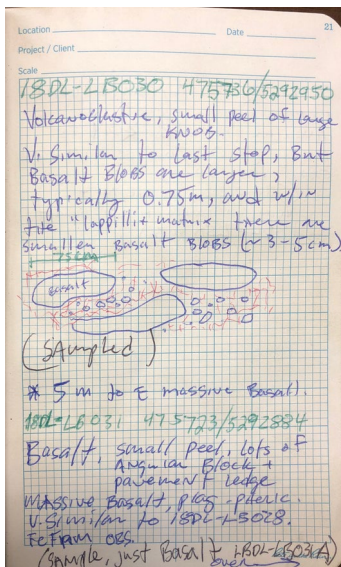 Location
Date
21
Project / Client
Scale
18DL-LB030 475736/5292950
Volcanoclastic, small peel of large
KNOB.
V. Similar to last stop, But
Basalt Blobs are larger,
typically 0.75m, and w/in
the "lappilli" matrix there are
smaller Basalt Blobs (~3-5cm)
75cm
Basalt
(Sampled)
* 5 m to E massive Basalt.
18DL-LB031 475723/5292884
Basalt, small peel, lots of
Angular Block +
pavement ledge
Massive Basalt, plag-phyric.
V. Similar to 18DL-LB028.
FeTiam OBS.
(Sample, just Basalt 18DL-LB031A)
over